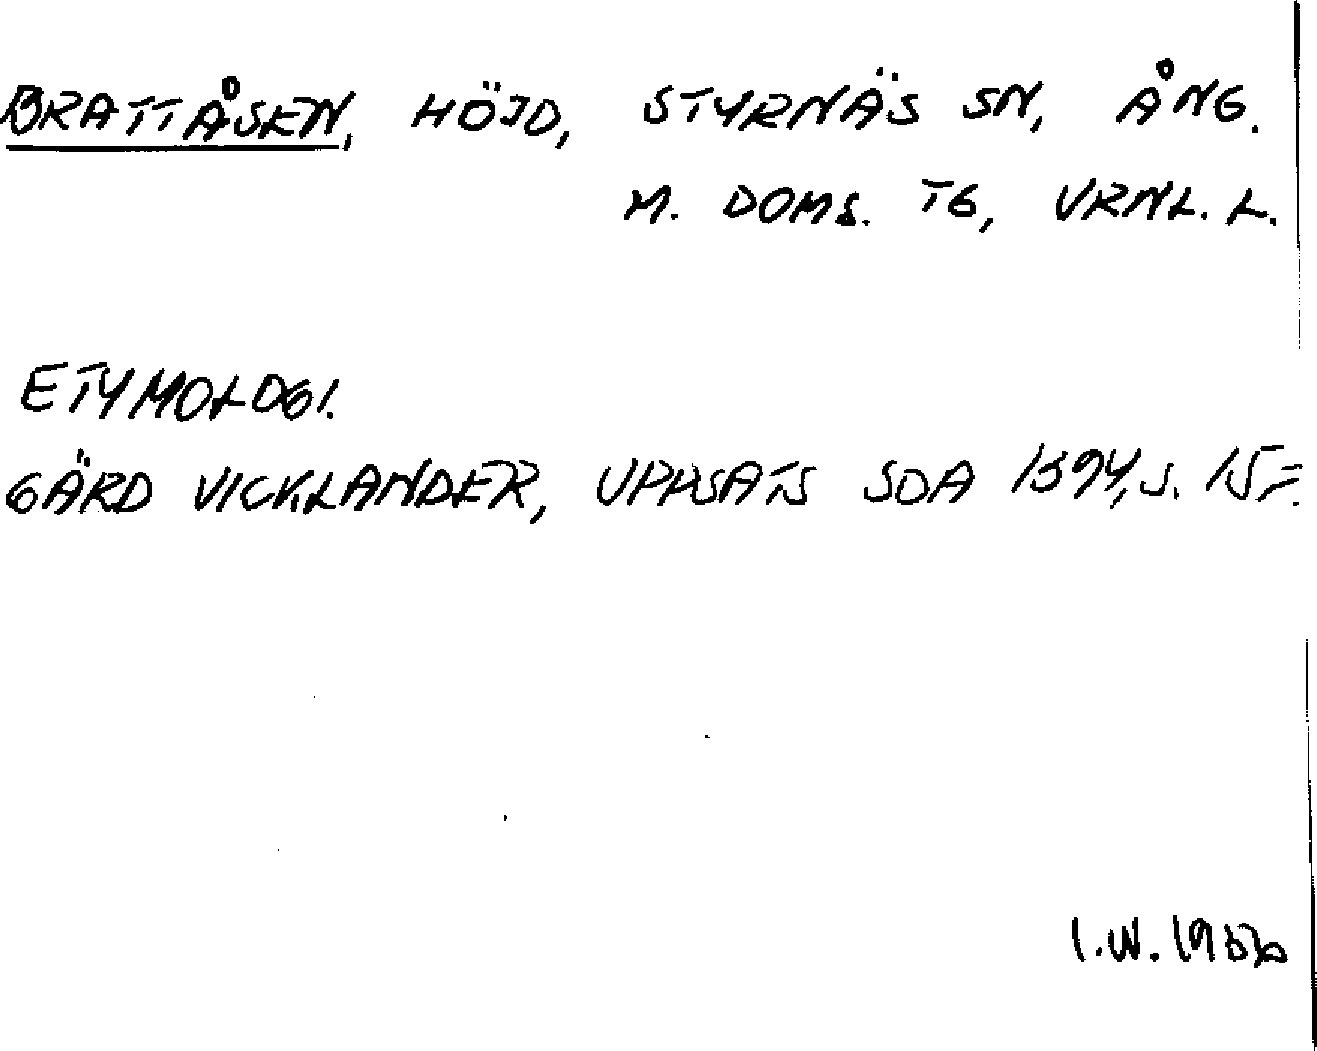 BRATTÅSEN, HÖJD, STYRNÄS SN, ÅNG.
M. DOMS. TG, VRNL. L.
ETYMOLOGI.
GÄRD VICKLANDER, UPPSATS SOA 1394, S. 15
I.W.